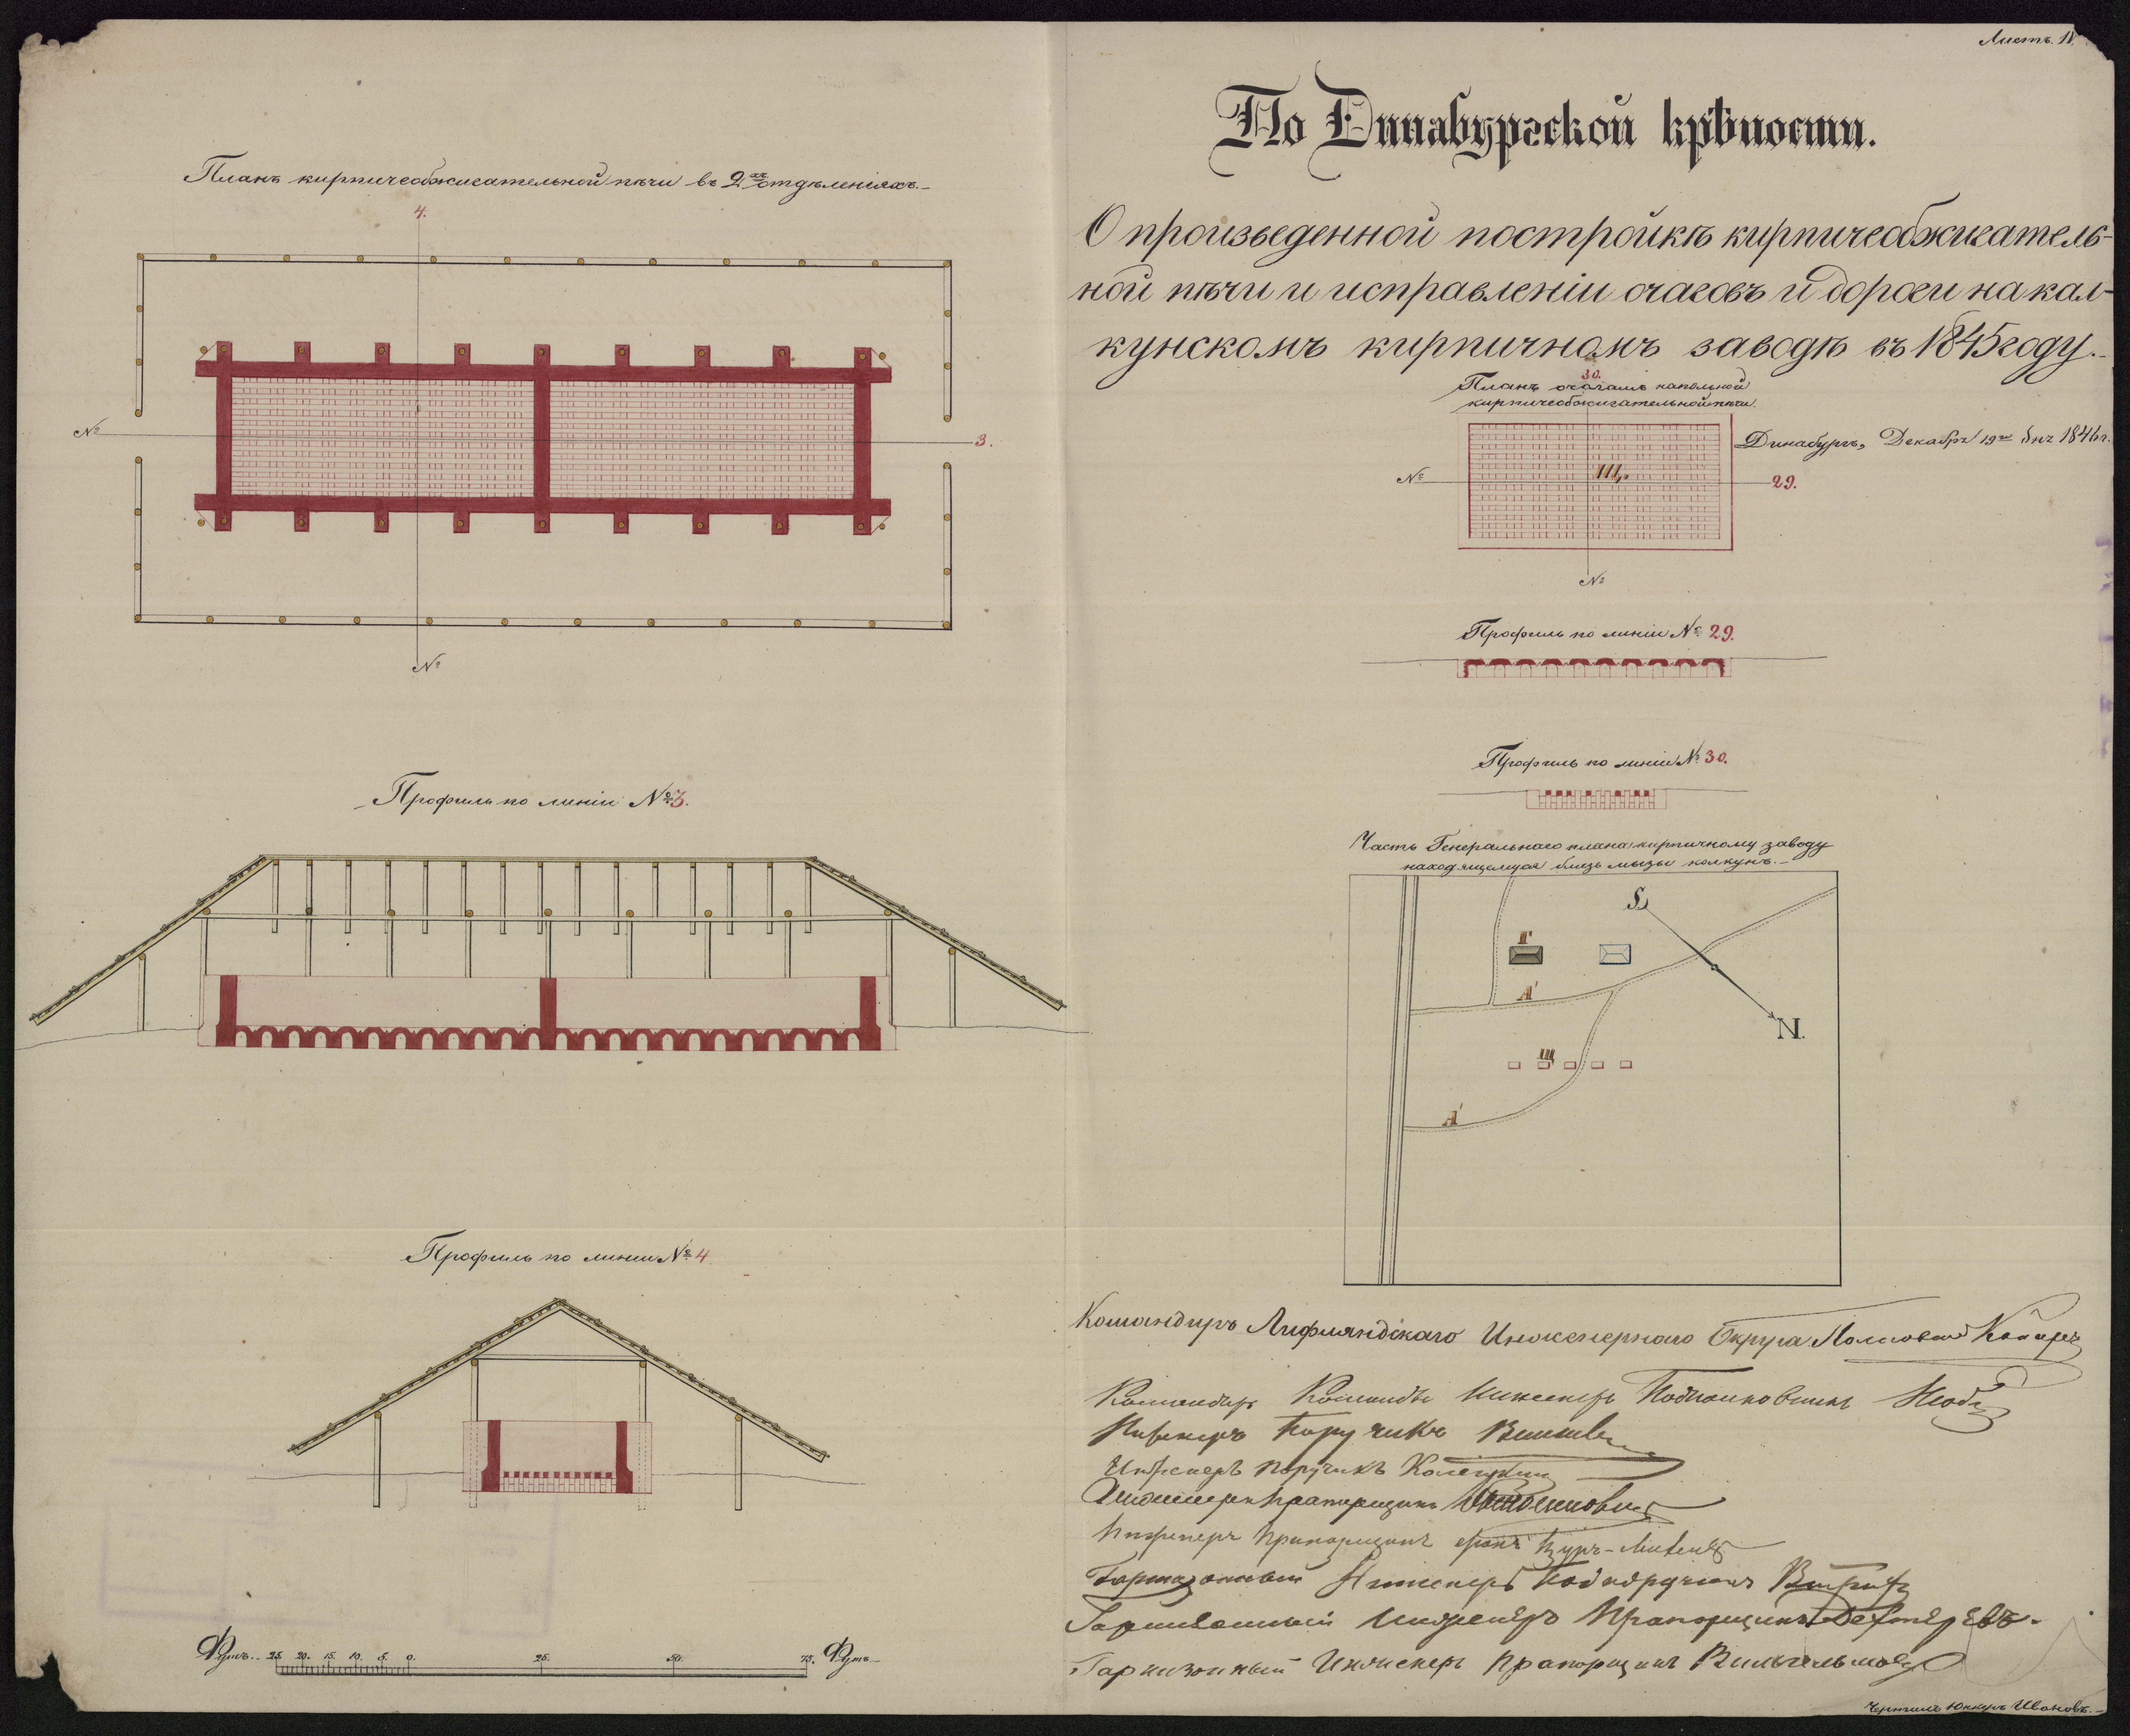 Листъ. IV.
По Динабургской крѣпости.
О произведенной постройкѣ кирпичеобжигатель-
ной пѣчи и исправленіи очаговъ и дороги на кал-
кунскомъ кирпичномъ заводѣ въ 1845 году.
Динабургъ, Декабря 19го дня 1846 г.
Планъ кирпичеобжигательной пѣчи въ 2хъ отдѣленіяхъ.
4.
№
3.
№
Профиль по линіи № 3.
Профиль по линіи № 4
Футъ. 25. 20. 15. 10. 5. 0. 25. 50. 75. Футъ
30.
Планъ очагамъ напольной
кирпичеобжигательной пѣчи.
Щ.
№
29.
№
Профиль по линіи № 29.
Профиль по линіи № 30.
Часть Генеральнаго плана кирпичному заводу
находящемуся близь мызы колкунъ.
S
Г
А
N.
Щ
А
Командиръ Лифляндскаго Инженернаго Округа Полковникъ
Командиръ Команды Инженеръ Подполковникъ
Инженеръ Поручикъ
Инженеръ Поручикъ
Инженеръ Прапорщикъ
Инженеръ Прапорщикъ фонъ Цуръ-Миленъ
Гарнизонный Инженеръ Подпоручикъ
Гарнизонный Инженеръ Прапорщикъ Дехтеревъ.
Гарнизонный Инженеръ Прапорщикъ Вильгельмовъ
Чертилъ Юнкеръ Ивановъ.